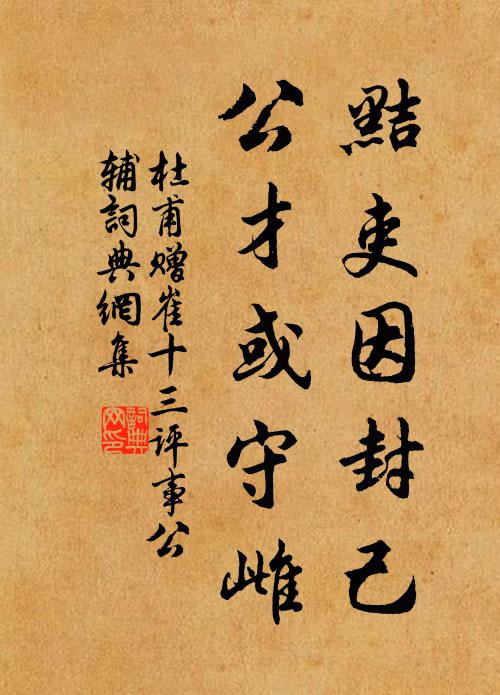 黠吏因封己
公才或守雌
杜甫赠崔十三评事公
辅詞典網集
詞典
网印